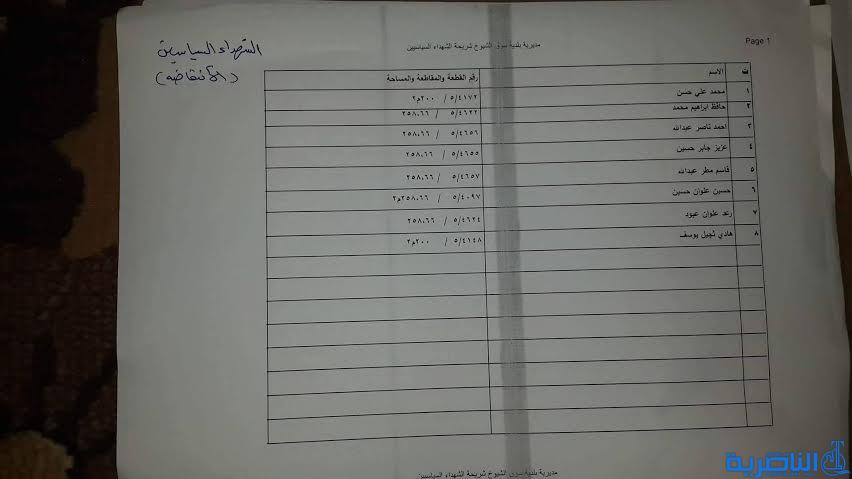 Page 1
مديرية بلدية سوق الشيوخ شريحة الشهداء السياسيين
الشهداء السياسيين
(الانتفاضة)
ت الاسم رقم القطعة والمقاطعة والمساحة
١ محمد علي حسن ٥/٤١٧٢ / ٢٠٠م٢
٢ حافظ ابراهيم محمد ٥/٤٦٢٢ / ٢٥٨،٦٦
٣ احمد ناصر عبدالله ٥/٤٦٥٦ / ٢٥٨،٦٦
٤ عزيز جابر حسين ٥/٤٦٥٥ / ٢٥٨،٦٦
٥ قاسم مطر عبدالله ٥/٤٦٥٧ / ٢٥٨،٦٦
٦ حسين علوان حسين ٥/٤٠٩٧ / ٢٥٨،٦٦م٢
٧ رعد علوان عبود ٥/٤٦٢٤ / ٢٥٨،٦٦
٨ هادي ثجيل يوسف ٥/٤١٤٨ / ٢٠٠م٢
مديرية بلدية سوق الشيوخ شريحة الشهداء السياسيين
الناصرية